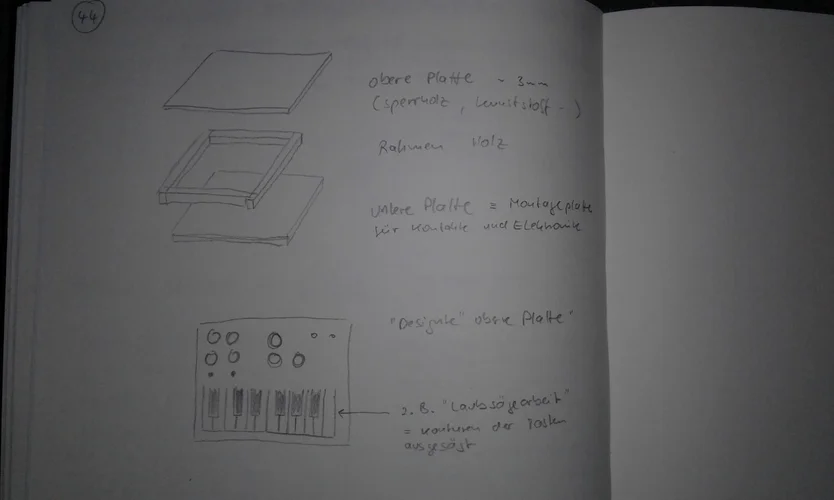 44
obere Platte ~ 3mm
(Sperrholz, Kunststoff - )
Rahmen Holz
untere Platte = Montageplatte
für Kontakte und Elektronik
"Designte" obere Platte"
z. B. "Laubsägearbeit"
= Konturen der Tasten
ausgesägt